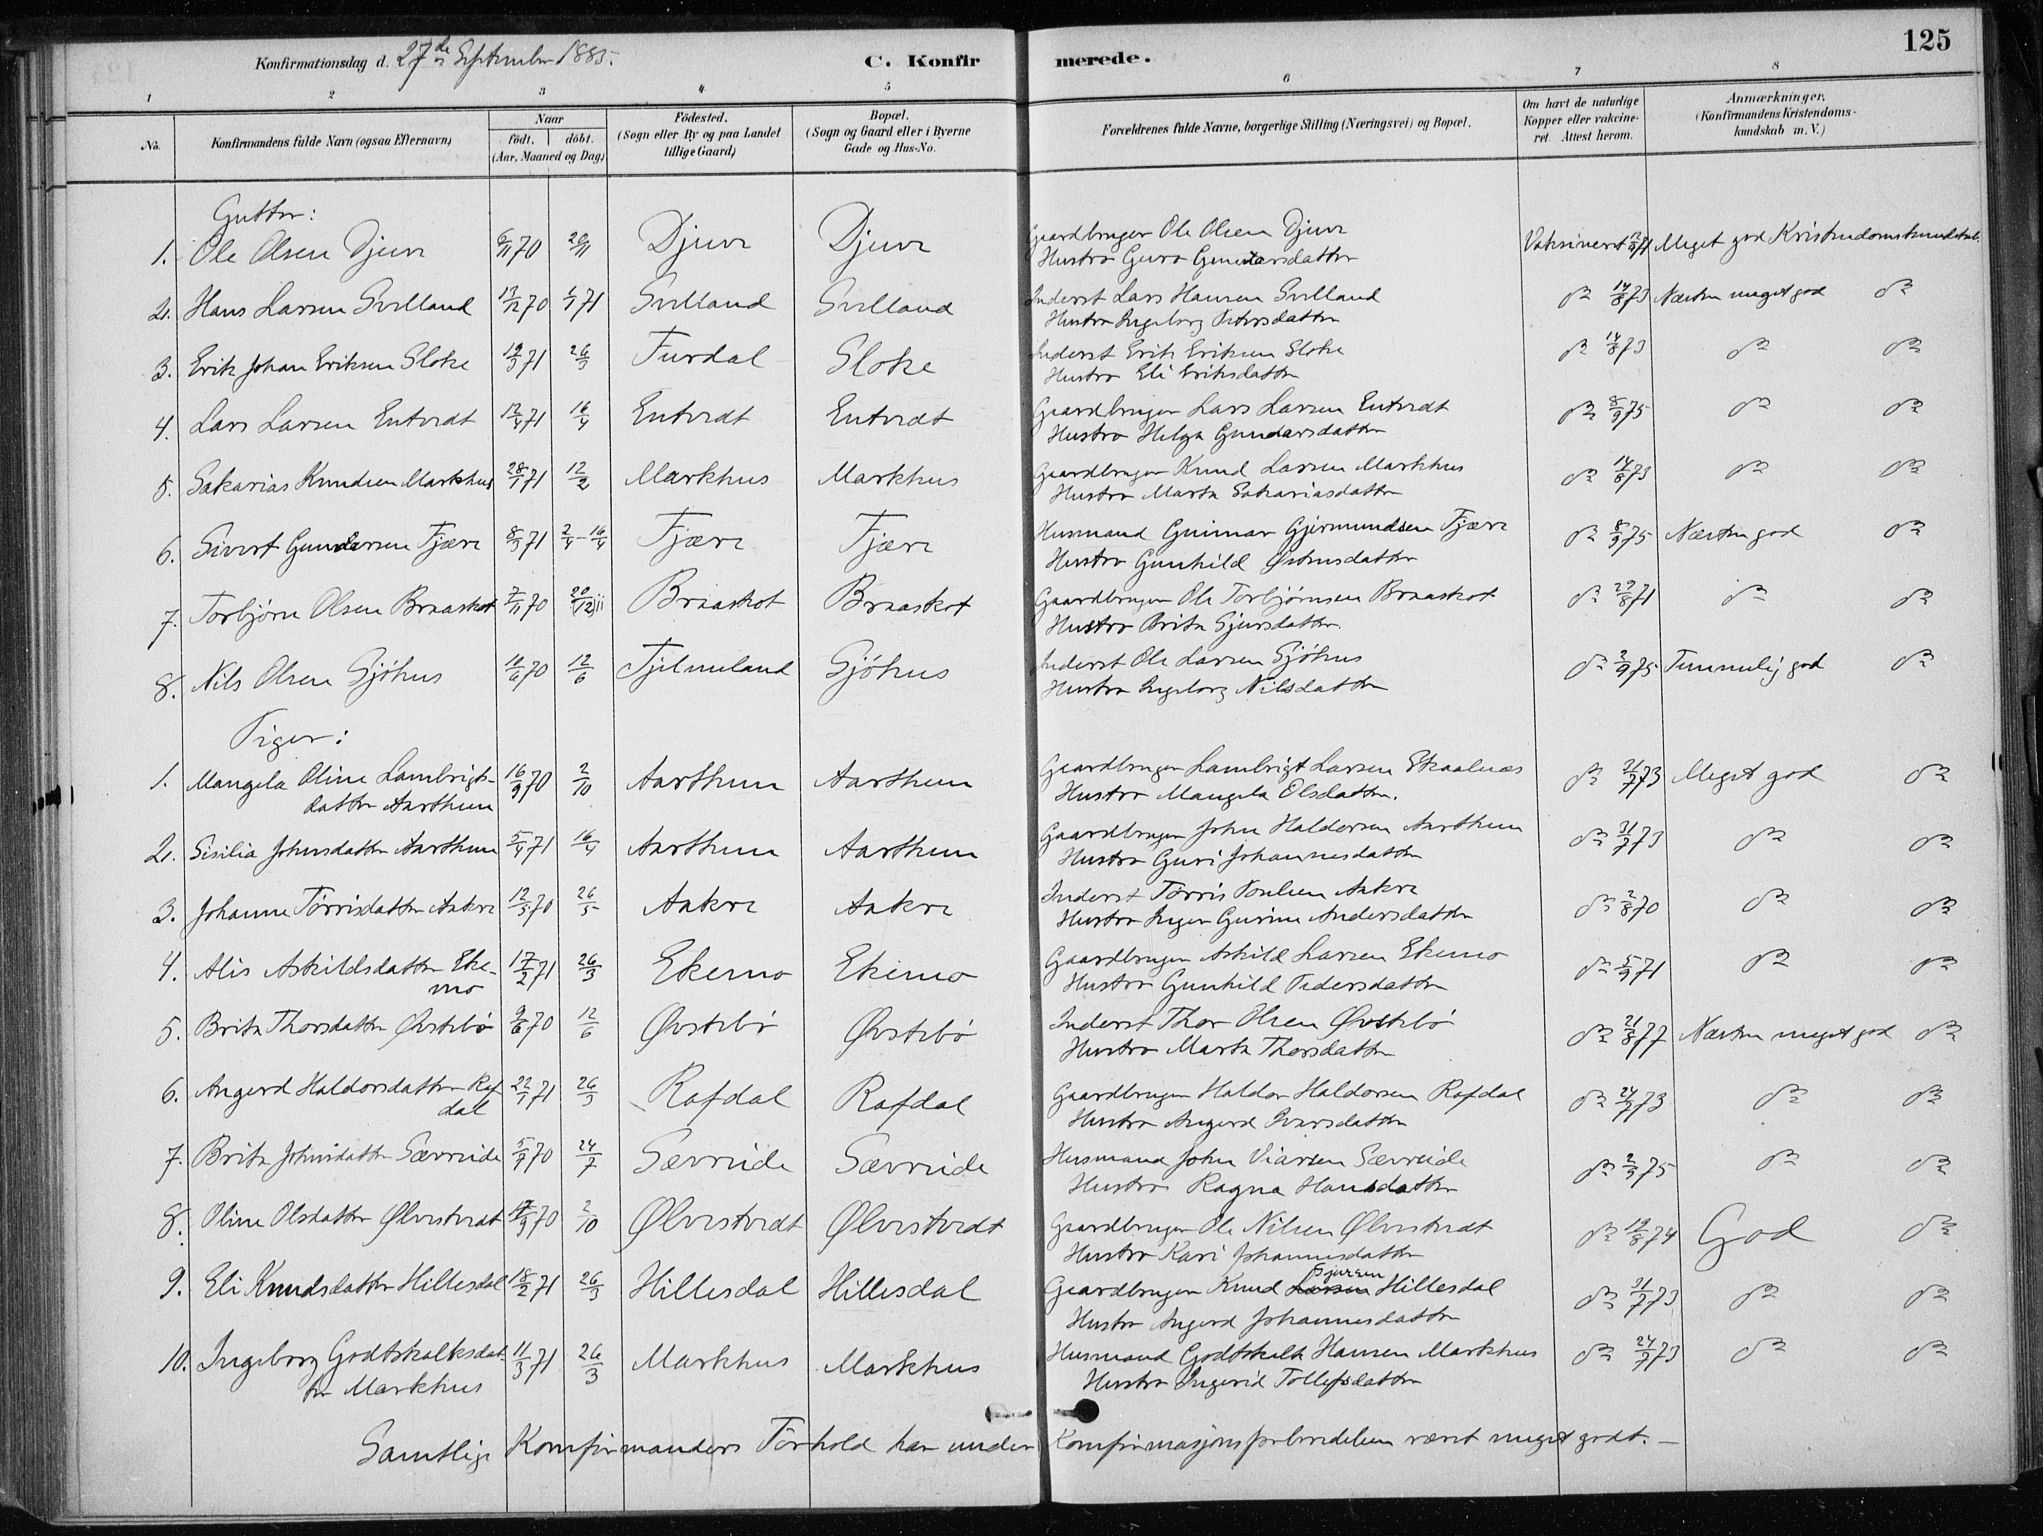 125
Konfirmationsdag d. 27de September 1885.
C. Konfirmerede.
1 2 3 4 5 6 7 8
No.
Konfirmandens fulde Navn (ogsaa Efternavn)
Naar
født. døbt.
(Aar, Maaned og Dag)
Fødested.
(Sogn eller By og paa Landet
tillige Gaard)
Bopæl.
(Sogn og Gaard eller i Byerne
Gade og Hus-No.
Forældrenes fulde Navne, borgerlige Stilling (Næringsvei) og Bopæl.
Om havt de naturlige
Kopper eller vakcine-
ret. Attest herom.
Anmærkninger.
(Konfirmandens Kristendoms-
kundskab m. V.)
Gutter:
1. Ole Olsen Djuve 6/11 70 20/11 Djuve Djuve Gaardbruger Ole Olsen Djuve
Hustru Guro Gunnarsdatter
Vaksineret Meget god Kristendomskundskab.
2. Hans Larsen Svilland 13/12 70 1/1 71 Svilland Svilland Inderst Lars Hansen Svilland
Hustru Ingeborg Petersdatter
do 14/8 73 Næsten meget god do
3. Erik Johan Eriksen Sloke 19/3 71 26/3 Furdal Sloke Inderst Erik Eriksen Sloke
Hustru Eli Eriksdatter
do 14/8 73 do do
4. Lars Larsen Entvedt 12/4 71 16/4 Entvedt Entvedt Gaardbruger Lars Larsen Entvedt
Hustru Helga Gunnarsdatter
do 8/9 75 do do
5. Sakarias Knudsen Markhus 28/1 71 12/2 Markhus Markhus Gaardbruger Knud Larsen Markhus
Hustru Marta Sakariasdatter
do 14/8 73 do do
6. Sivert Gunnarsen Fjære 8/3 71 2/4-16/4 Fjære Fjære Husmand Gunnar Gjermundsen Fjære
Hustru Gunhild Østensdatter
do 8/9 75 Næsten god do
7. Torbjørn Olsen Braaskot 7/11 70 20/11 Braaskot Braaskot Gaardbruger Ole Torbjørnsen Braaskot
Hustru Brita Sjursdatter
do 29/8 71 do do
8. Nils Olsen Sjøhus 10/6 70 12/6 Fjelmeland Sjøhus Inderst Ole Larsen Sjøhus
Hustru Ingeborg Nilsdatter
do 2/9 75 Temmelig god do
Piger:
1. Mangela Oline Lambrigts-
datter Aarthun 16/9 70 2/10 Aarthun Aarthun Gaardbruger Lambrigt Larsen Skaalnæs
Hustru Mangela Olsdatter.
do 21/7 73 Meget god do
2. Sisilia Johnsdatter Aarthun 5/4 71 16/4 Aarthun Aarthun Gaardbruger John Haldorsen Aarthun
Hustru Guri Johannesdatter
do 31/7 73 do do
3. Johanne Tørrisdatter Aakre 12/5 70 26/5 Aakre Aakre Inderst Tørris Poulsen Aakre
Hustru Inger Gurine Andersdatter
do 2/8 70 do do
4. Alis Askildsdatter Eke-
mo 17/2 71 26/3 Ekemo Ekemo Gaardbruger Askild Larsen Ekemo
Hustru Gunhild Pedersdatter
do 5/9 71 do do
5. Brita Thorsdatter Øvstebø 9/6 70 12/6 Øvstebø Øvstebø Inderst Thor Olsen Øvstebø
Hustru Marta Thorsdatter
do 21/8 77 Næsten meget god do
6. Angerd Haldorsdatter Raf
dal 22/1 71 26/3 Rafdal Rafdal Gaardbruger Haldor Haldorsen Rafdal
Hustru Angerd Ivarsdatter
do 24/7 73 do do
7. Brita Johnsdatter Sævreide 5/7 70 24/7 Sævreide Sævreide Husmand John Viarsen Sævreide
Hustru Ragna Hansdatter
do 2/9 75 do do
8. Oline Olsdatter Ølvestvedt 17/9 70 2/10 Ølvestvedt Ølvestvedt Gaardbruger Ole Nilsen Ølvestvedt
Hustru Kari Johannesdatter
do 19/8 74 God do
9. Eli Knudsdatter Hillesdal 18/2 71 26/3 Hillesdal Hillesdal Gaardbruger Knud Larsen Sjursen Hillesdal
Hustru Angerd Johannesdatter
do 31/7 73 do do
10. Ingeborg Godtskalksdat-
ter Markhus 11/3 71 26/3 Markhus Markhus Husmand Godtskalk Hansen Markhus
Hustru Ingerid Tollefsdatter
do 24/7 73 do do
Samtlige Konfirmanders Forhold har under Konfirmasjonsforberedelsen været meget godt.—